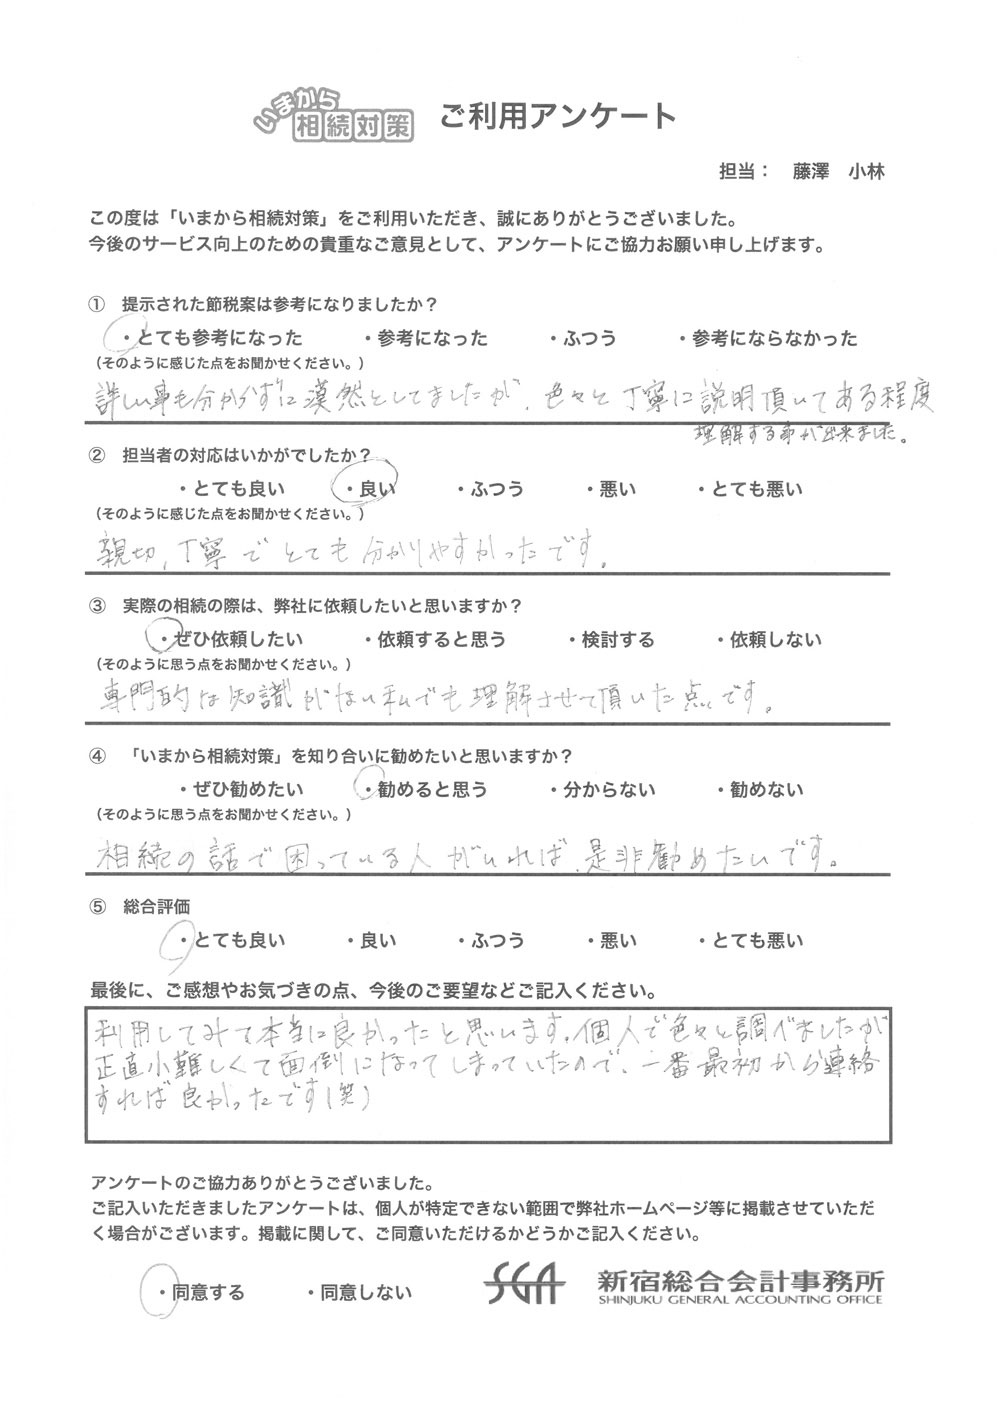 いまから
相続対策 ご利用アンケート
担当： 藤澤 小林
この度は「いまから相続対策」をご利用いただき、誠にありがとうございました。
今後のサービス向上のための貴重なご意見として、アンケートにご協力お願い申し上げます。
① 提示された節税案は参考になりましたか？
・とても参考になった ・参考になった ・ふつう ・参考にならなかった
（そのように感じた点をお聞かせください。）
詳しい事も分からずに漠然としてましたが、色々と丁寧に説明頂いてある程度
理解する事が出来ました。
② 担当者の対応はいかがでしたか？
・とても良い ・良い ・ふつう ・悪い ・とても悪い
（そのように感じた点をお聞かせください。）
親切、丁寧でとても分かりやすかったです。
③ 実際の相続の際は、弊社に依頼したいと思いますか？
・ぜひ依頼したい ・依頼すると思う ・検討する ・依頼しない
（そのように思う点をお聞かせください。）
専門的な知識がない私でも理解させて頂いた点です。
④ 「いまから相続対策」を知り合いに勧めたいと思いますか？
・ぜひ勧めたい ・勧めると思う ・分からない ・勧めない
（そのように思う点をお聞かせください。）
相続の話で困っている人がいれば、是非勧めたいです。
⑤ 総合評価
・とても良い ・良い ・ふつう ・悪い ・とても悪い
最後に、ご感想やお気づきの点、今後のご要望などご記入ください。
利用してみて本当に良かったと思います。個人で色々と調べましたが
正直小難しくて面倒になってしまっていたので、一番最初から連絡
すれば良かったです(笑)
アンケートのご協力ありがとうございました。
ご記入いただきましたアンケートは、個人が特定できない範囲で弊社ホームページ等に掲載させていただ
く場合がございます。掲載に関して、ご同意いただけるかどうかご記入ください。
・同意する ・同意しない
SGA 新宿総合会計事務所
SHINJUKU GENERAL ACCOUNTING OFFICE